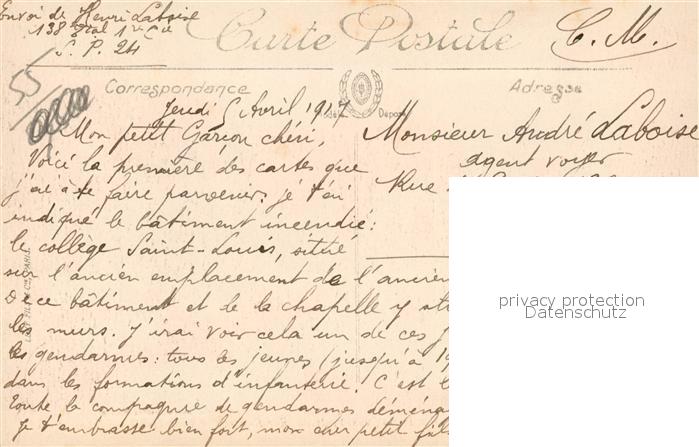 Envoi de Henri Laboise
138e Btal 1re Cie
S. P. 24
Carte Postale
C. M.
55
Correspondance
Adresse
Jeudi 5 Avril 1917
Mon petit Garçon chéri,
Voici la première des cartes que
j'ai à te faire parvenir. je t'ai
indiqué le bâtiment incendié:
le collège Saint-Louis, situé
sur l'ancien emplacement de l'ancien
De ce bâtiment et de la chapelle y
les murs. J'irai voir cela un de ces j
les gendarmes: tous les jeunes (jusqu'à 19
dans les formations d'infanterie. C'est
toute la compagnie de gendarmes déména
Je t'embrasse bien fort, mon cher petit fils
Monsieur André Laboise
agent voyer
Rue
privacy protection
Datenschutz